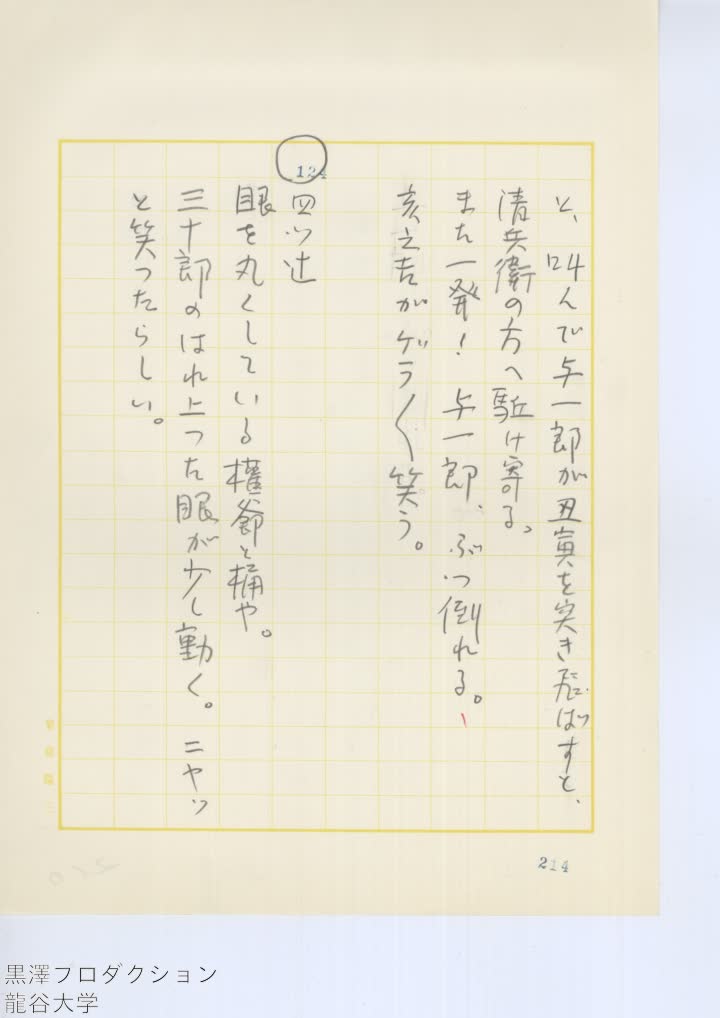 と、叫んで与一郎が丑寅を突き飛ばすと、
清兵衛の方へ駈け寄る。
また一発！　与一郎、ぶっ倒れる。
亥之吉がゲラ〱笑う。
124
四ツ辻
眼を丸くしている権爺と桶や。
三十郎のはれ上った眼が少し動く。ニヤッ
と笑ったらしい。
214
黒澤プロダクション
龍谷大学